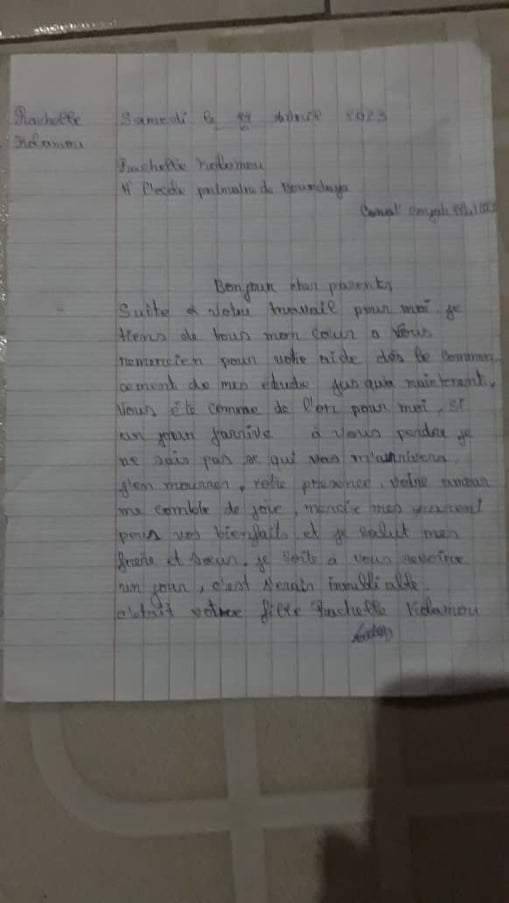 Rachelle
Kolamou
Samedi le 2023
Rachelle Kolamou
A l'ecole primaire de
Bonjour cher parents
Suite a votre travail pour moi je
tiens de tous mon cœur a vous
remercier pour votre aide dès le commen
cement de mes étude jus qua maintenant,
vous été comme de l'or pour moi, si
un jour j'arrive à vous perdre je
ne sais pas se qui vas m'arrivera
j'en mourrer, votre presence, votre
ma comble de joie, mes
pour vos bienfaits et je salut mes
frère et sœur. je soite à vous revoire
un jour, c'est
c'etait votre fille Rachelle Kolamou